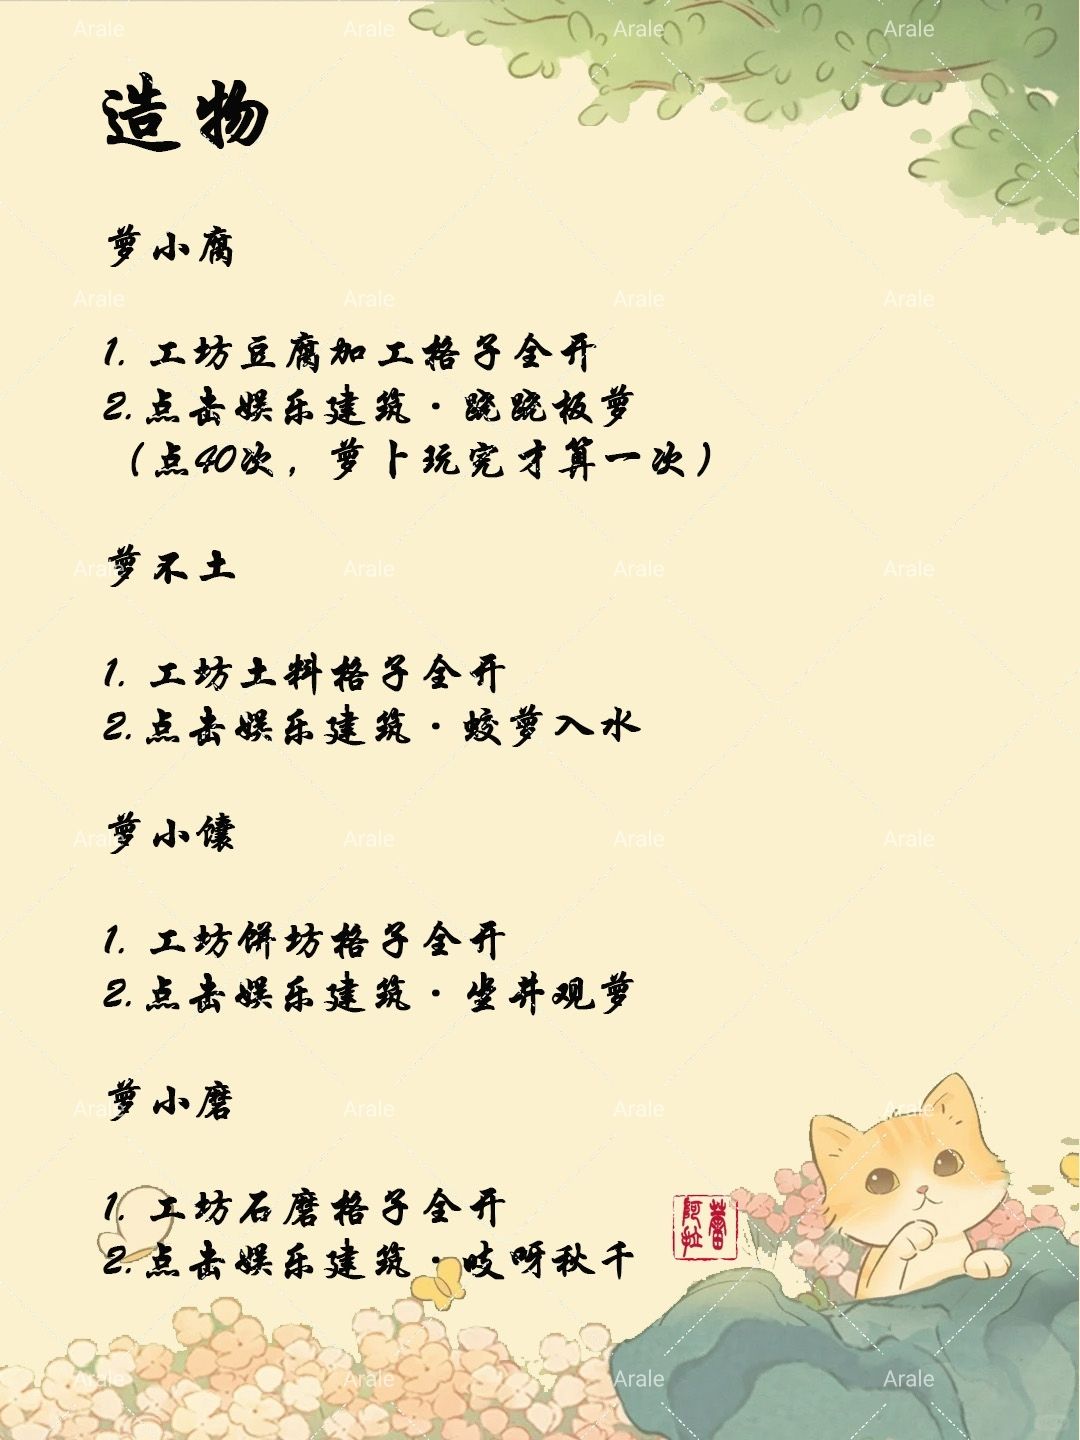 造物
萝小腐
1. 工坊豆腐加工格子全开
2.点击娱乐建筑·跷跷板萝
（点40次，萝卜玩完才算一次）
萝不土
1. 工坊土料格子全开
2.点击娱乐建筑·蛟萝入水
萝小馕
1. 工坊饼坊格子全开
2.点击娱乐建筑·坐井观萝
萝小磨
1. 工坊石磨格子全开
2.点击娱乐建筑·吱呀秋千
阿拉蕾
Arale Arale Arale Arale
Arale Arale Arale Arale
Arale Arale Arale Arale
Arale Arale Arale Arale
Arale Arale Arale Arale
Arale Arale Arale Arale